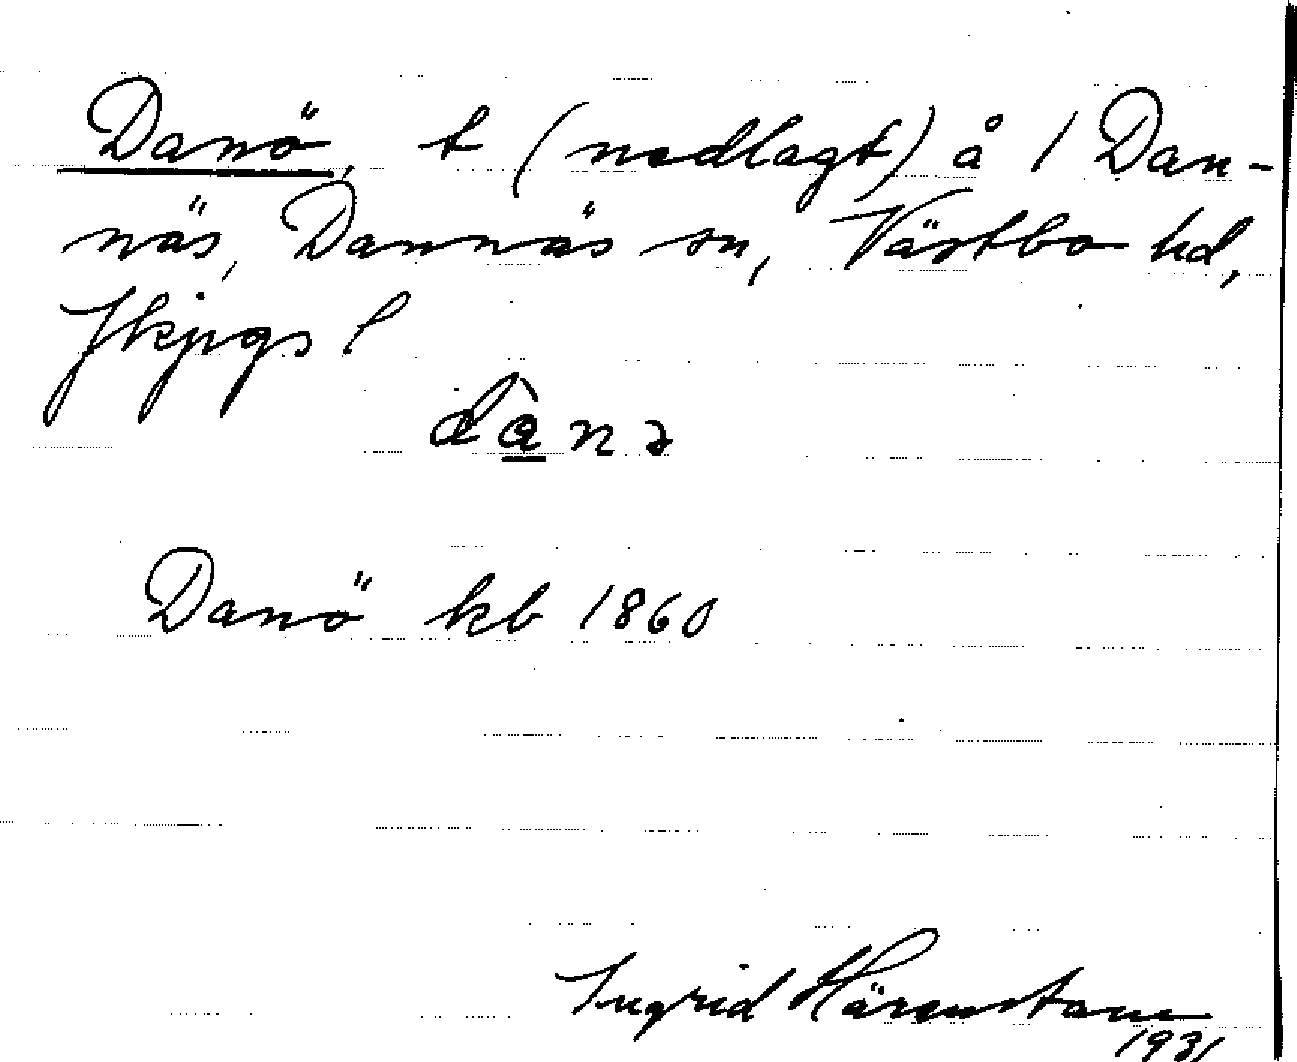 Danö, t (nedlagt) å 1 Dan-
näs, Dannäs sn, Västbo hd,
Jkpgs l
Danö kb 1860
Ingrid
1931